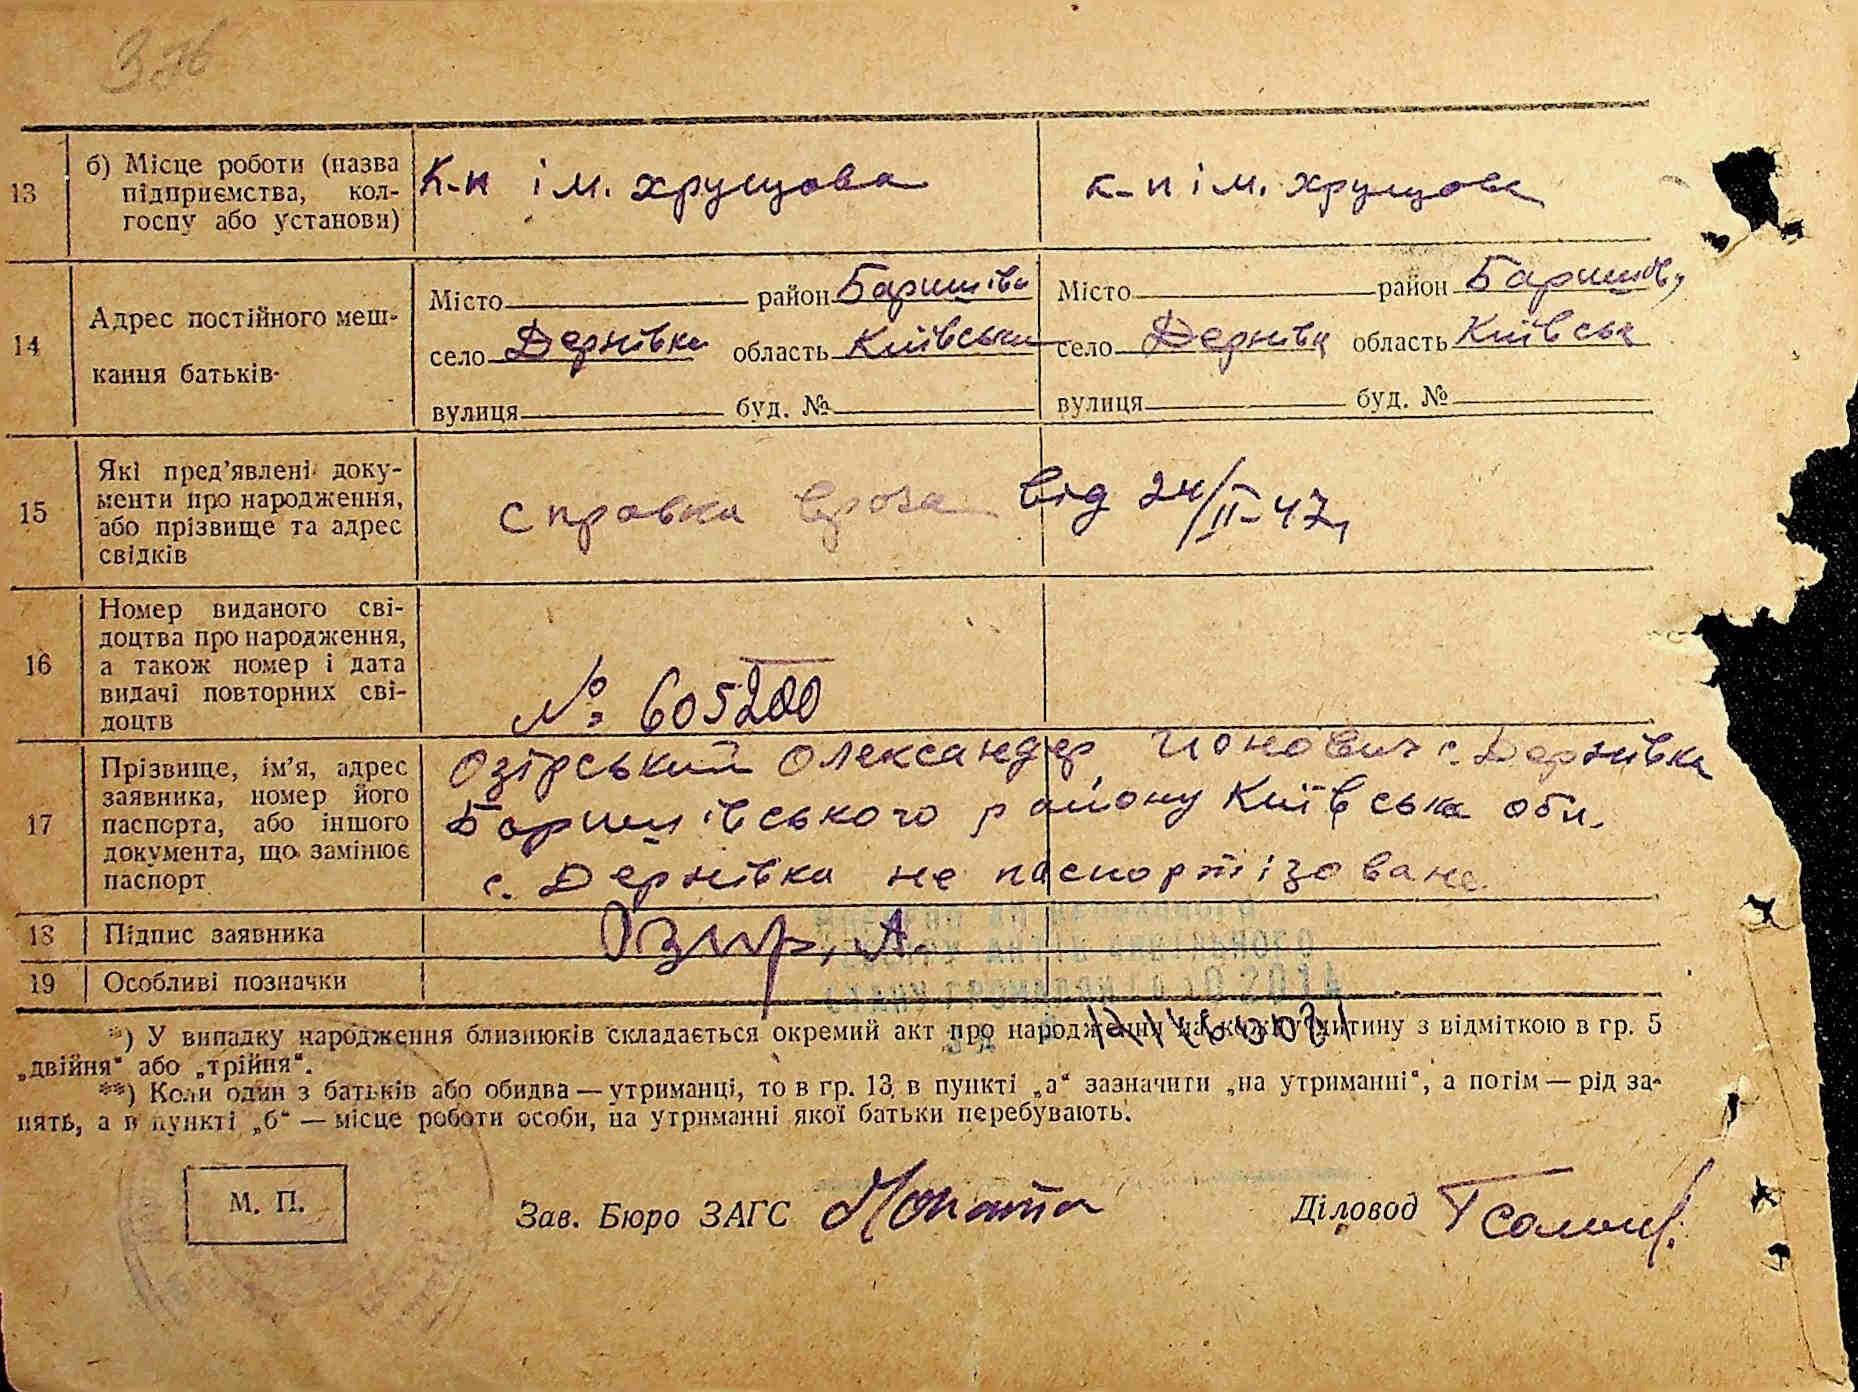 13
б) Місце роботи (назва
підприємства, кол-
госпу або установи)
К-п ім. хрущова
к-п ім. хрущова
14
Адрес постійного меш-
кання батьків
Місто район Баришівка
село Дернівка область Київська
вулиця буд. №
Місто район Баришів
село Дернівка область Київська
вулиця буд. №
15
Які пред’явлені доку-
менти про народження,
або прізвище та адрес
свідків
справка від 24/II-47
16
Номер виданого сві-
доцтва про народження,
а також номер і дата
видачі повторних сві-
доцтв
№ 605200
17
Прізвище, ім’я, адрес
заявника, номер його
паспорта, або іншого
документа, що замінює
паспорт
Озірський Олександер Йонович с. Дернівка
Баришівського району Київська обл.
с. Дернівка не паспортізоване
18
Підпис заявника
Озир, А.
19
Особливі позначки
*) У випадку народження близнюків складається окремий акт про народження на кожну дитину з відміткою в гр. 5
„двійня“ або „трійня“.
**) Коли один з батьків або обидва — утриманці, то в гр. 13 в пункті „а“ зазначити „на утриманні“, а потім — рід за-
нять, а в пункті „б“ — місце роботи особи, на утриманні якої батьки перебувають.
М. П.
Зав. Бюро ЗАГС
Діловод